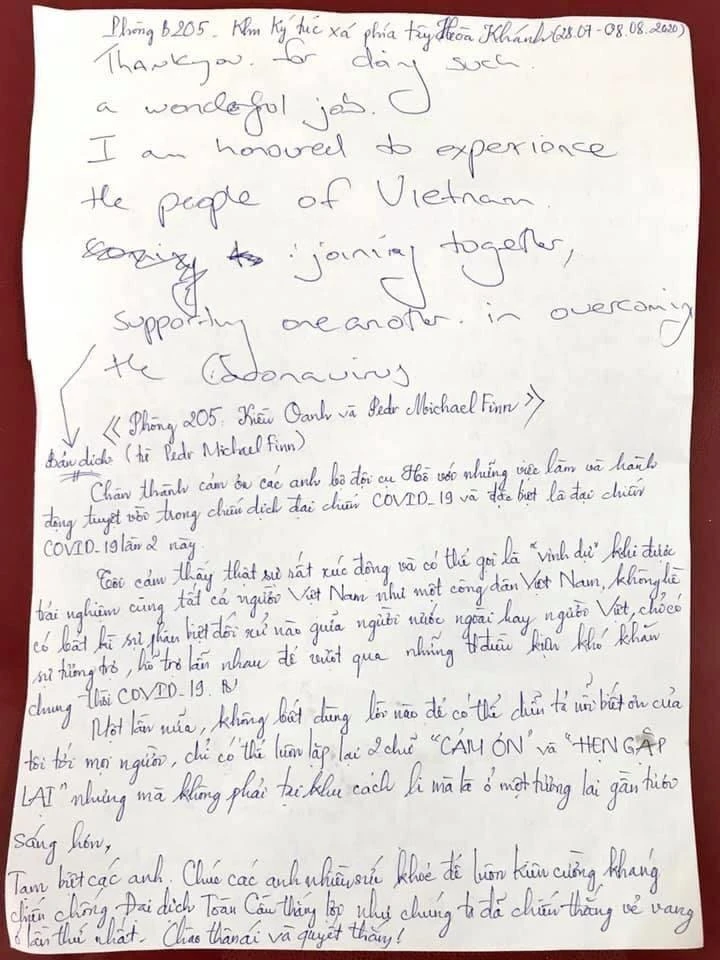 Phòng B205 - Khu Ký túc xá phía tây Hòa Khánh (28.07 - 08.08.2020)
Thankyou for doing such
a wonderful job.
I am honoured to experience
the people of Vietnam
joining together,
supporting one another in overcoming
the Coronavirus
<< Phòng 205: Kiều Oanh và Pedr Michael Finn >>
Bản dịch (từ Pedr Michael Finn)
Chân thành cảm ơn các anh bộ đội cụ Hồ với những việc làm và hành
động tuyệt vời trong chiến dịch đại chiến COVID_19 và đặc biệt là đại chiến
COVID_19 lần 2 này.
Tôi cảm thấy thật sự rất xúc động và có thể gọi là "vinh dự" khi được
trải nghiệm cùng tất cả người Việt Nam như một công dân Việt Nam, không hề
có bất kì sự phân biệt đối xử nào giữa người nước ngoài hay người Việt, chỉ có
sự tương trợ, hỗ trợ lẫn nhau để vượt qua những điều kiện khó khăn
chung thời COVID_19.
Một lần nữa, không biết dùng lời nào để có thể diễn tả nỗi biết ơn của
tôi tới mọi người, chỉ có thể luôn lặp lại 2 chữ "CẢM ƠN" và "HẸN GẶP
LẠI" nhưng mà không phải tại khu cách li mà là ở một tương lai gần tươi
sáng hơn,
Tạm biệt các anh. Chúc các anh nhiều sức khoẻ để luôn kiên cường kháng
chiến chống Đại dịch Toàn Cầu thắng lợi như chúng ta đã chiến thắng vẻ vang
ở lần thứ nhất. Chào thân ái và quyết thắng!